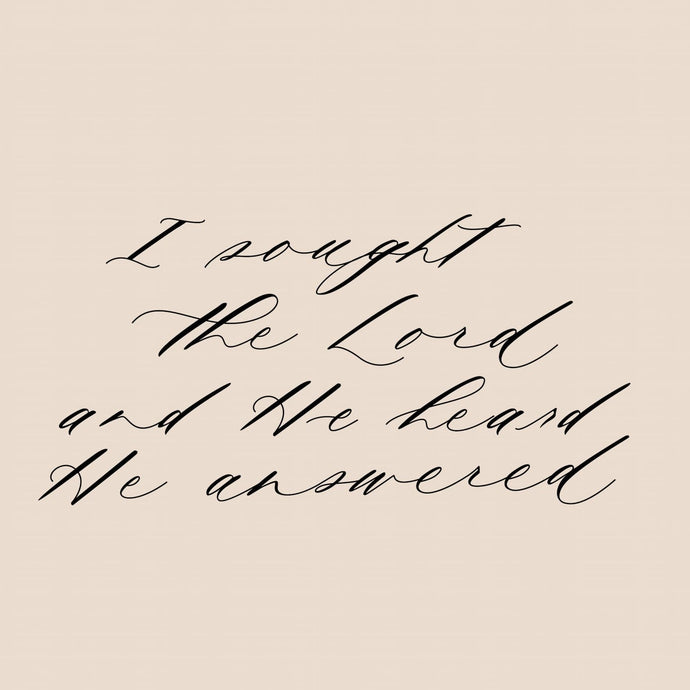 I sought
the Lord
and He heard
He answered